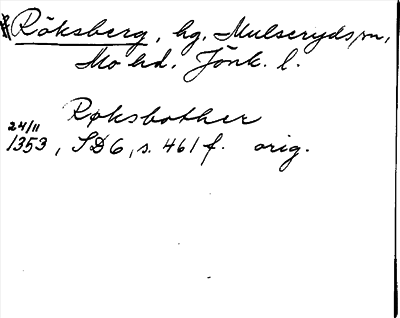 Röksberg, hg, Mulseryds sn,
Mo hd. Jönk. l.
Røksbother
24/11
1353, SD6, s. 461 f. orig.